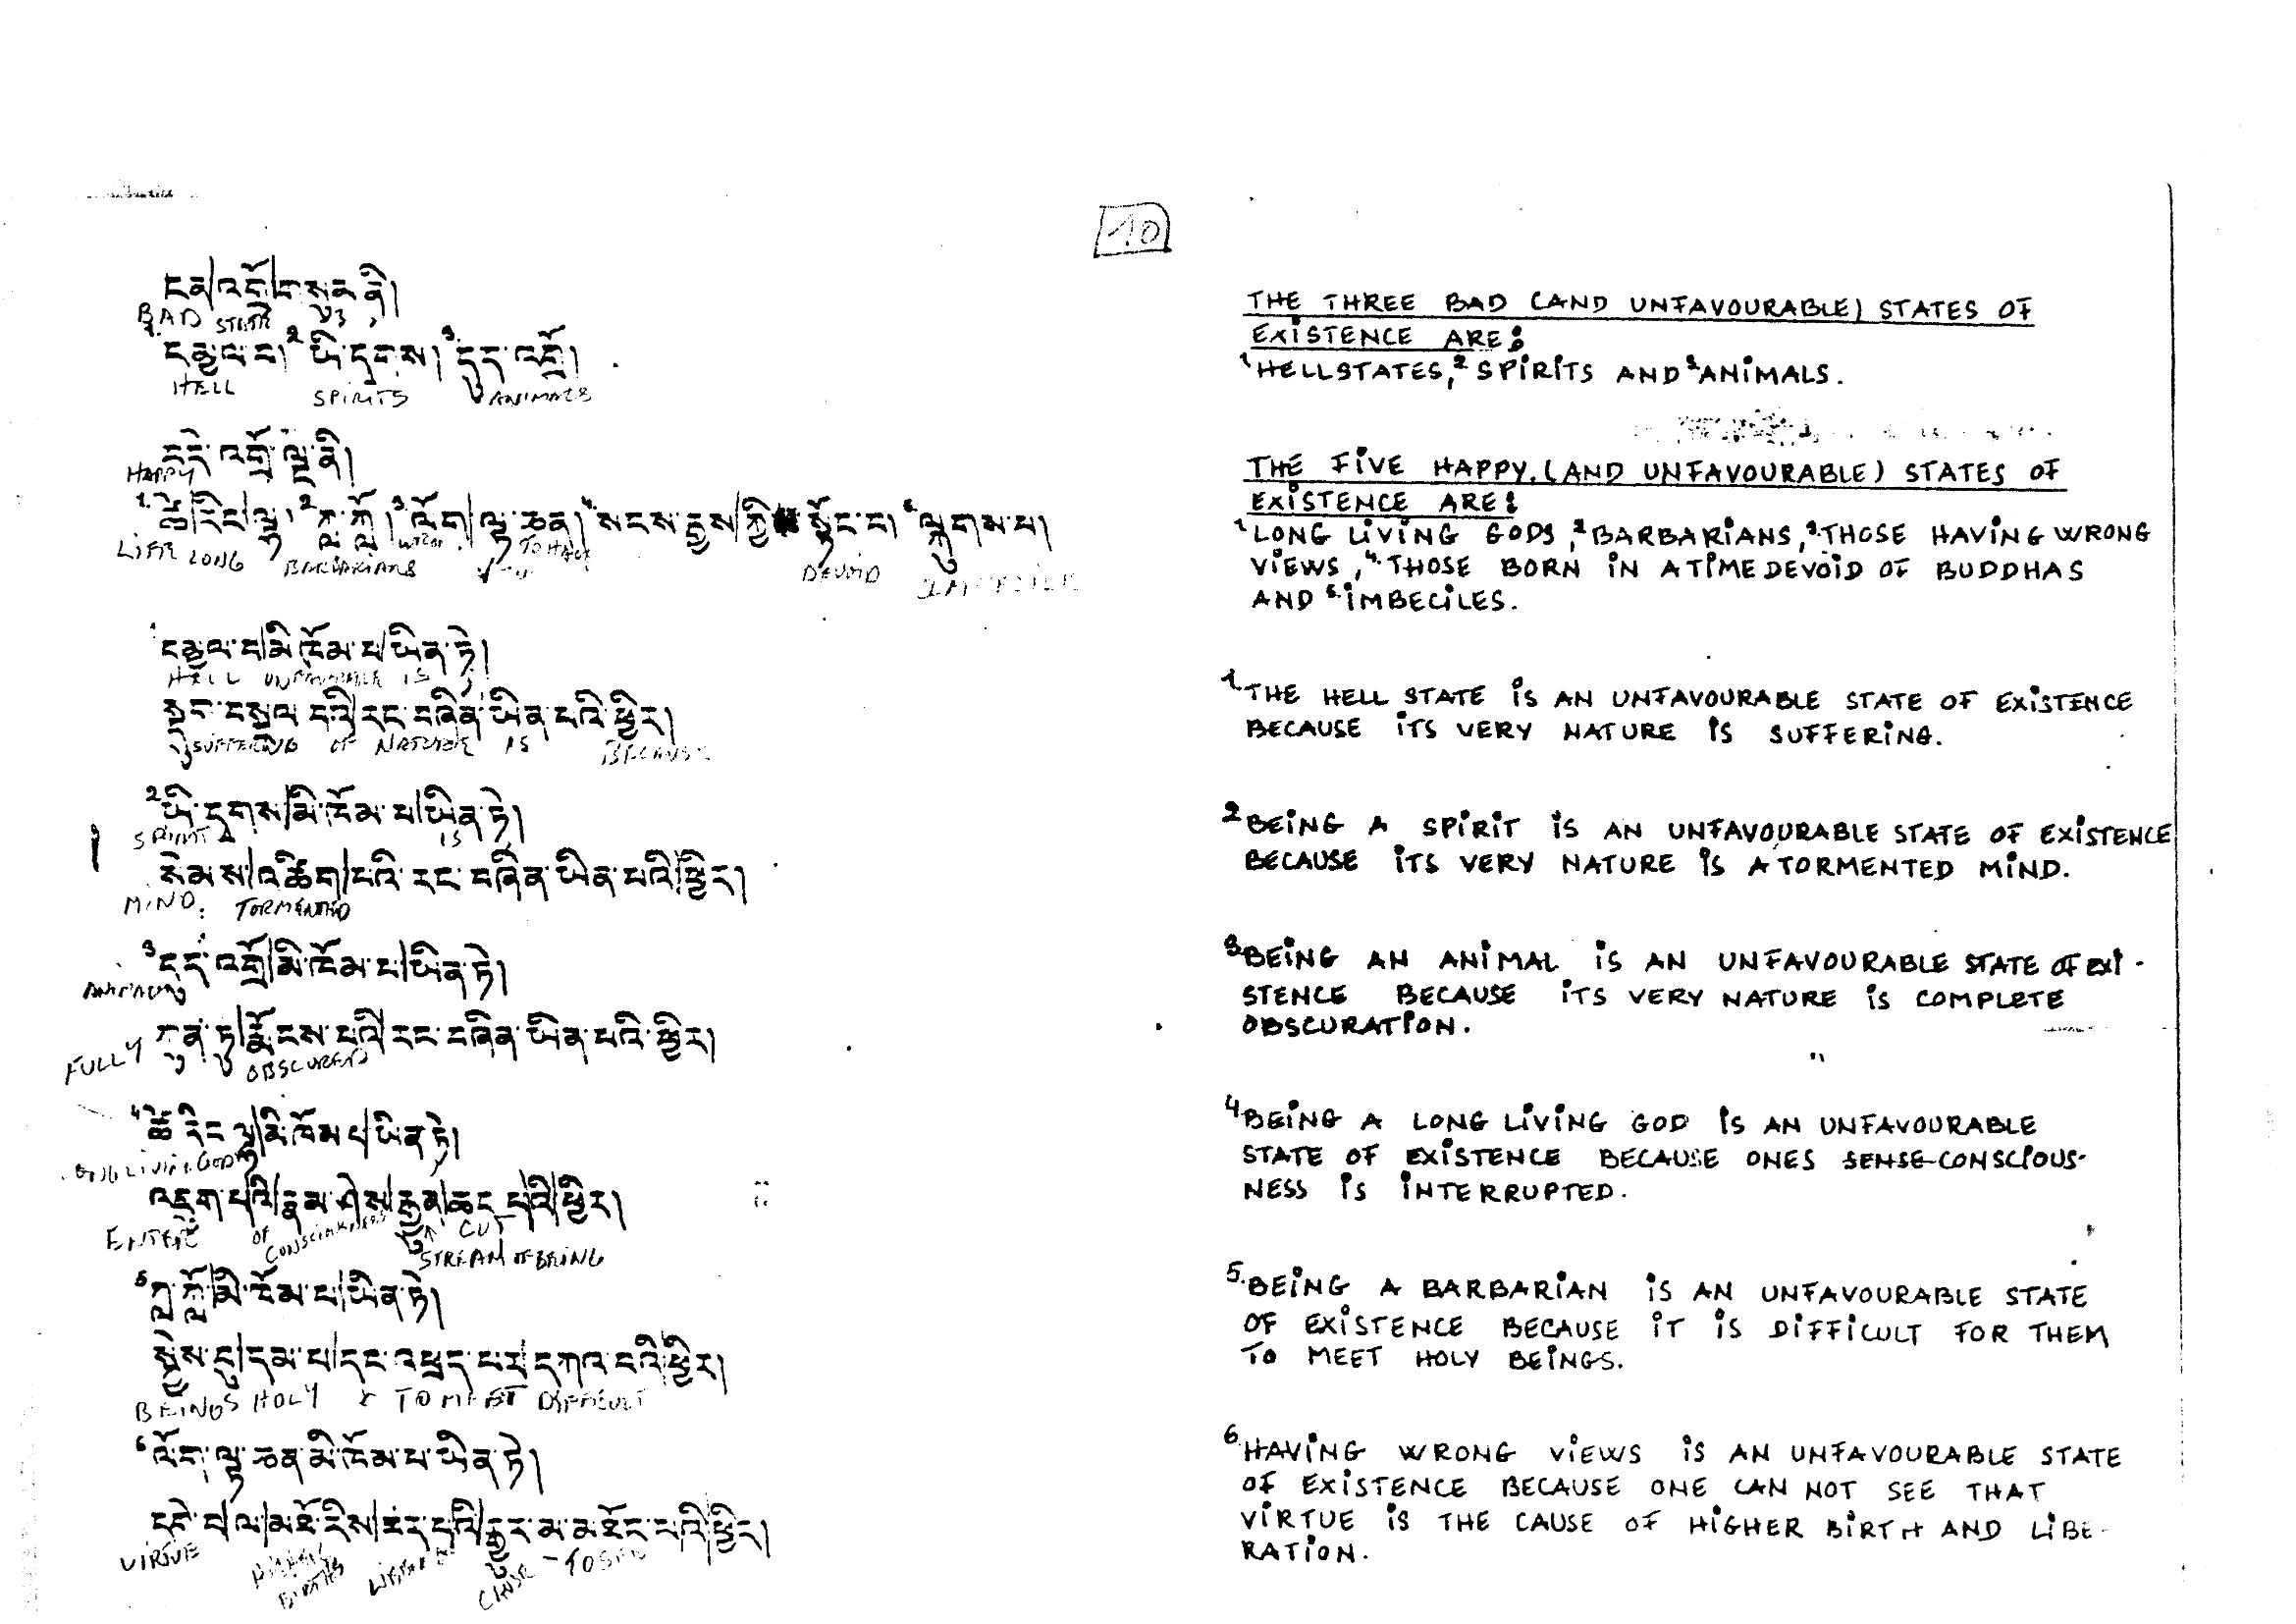 10
ངན་འགྲོ་གསུམ་ནི།
BAD STATE 3
1 དམྱལ་བ། 2 ཡི་དྭགས། 3 དུད་འགྲོ།
HELL SPIRITS ANIMALS
བདེ་འགྲོ་ལྔ་ནི།
HAPPY
1 ཚེ་རིང་ལྷ། 2 ཀླ་ཀློ། 3 ལོག་ལྟ་ཅན། 4 སངས་རྒྱས་ཀྱི སྟོང་པ། 5 ལྐུགས་པ།
LIFE LONG BARBARIANS TO HAVE DEVOID
1 དམྱལ་བ་མི་ཁོམ་པ་ཡིན་ཏེ།
HELL UNFAVOURABLE IS
སྡུག་བསྔལ་བའི་རང་བཞིན་ཡིན་པའི་ཕྱིར།
SUFFERING OF NATURE IS BECAUSE
2 ཡི་དགས་མི་ཁོམ་པ་ཡིན་ཏེ།
SPIRIT IS
སེམས་འཚིག་པའི་རང་བཞིན་ཡིན་པའི་ཕྱིར།
MIND TORMENTED
3 དུད་འགྲོ་མི་ཁོམ་པ་ཡིན་ཏེ།
ཀུན་ཏུ་རྨོངས་པའི་རང་བཞིན་ཡིན་པའི་ཕྱིར།
FULLY OBSCURED
4 ཚེ་རིང་ལྷ་མི་ཁོམ་པ་ཡིན་ཏེ།
LIVING GOD
འཇུག་པའི་རྣམ་ཤེས་རྒྱུན་ཆད་པའི་ཕྱིར།
ENTER OF CONSCIOUSNESS CUT
STREAM OF BEING
5 ཀླ་ཀློ་མི་ཁོམ་པ་ཡིན་ཏེ།
སྐྱེས་བུ་དམ་པ་དང་འཕྲད་པར་དཀའ་བའི་ཕྱིར།
BEINGS HOLY & TO MEET DIFFICULT
6 ལོག་ལྟ་ཅན་མི་ཁོམ་པ་ཡིན་ཏེ།
དགེ་བ་ལ་མཐོ་རིས་ཐར་པའི་རྒྱུར་མ་མཐོང་བའི་ཕྱིར།
VIRTUE BIRTHS CAUSE - TO SEE
THE THREE BAD (AND UNFAVOURABLE) STATES OF
EXISTENCE ARE:
1 HELLSTATES, 2 SPIRITS AND 3 ANIMALS.
THE FIVE HAPPY (AND UNFAVOURABLE) STATES OF
EXISTENCE ARE:
1 LONG LIVING GODS, 2 BARBARIANS, 3 THOSE HAVING WRONG
VIEWS, 4 THOSE BORN IN A TIME DEVOID OF BUDDHAS
AND 5 IMBECILES.
1 THE HELL STATE IS AN UNFAVOURABLE STATE OF EXISTENCE
BECAUSE ITS VERY NATURE IS SUFFERING.
2 BEING A SPIRIT IS AN UNFAVOURABLE STATE OF EXISTENCE
BECAUSE ITS VERY NATURE IS A TORMENTED MIND.
3 BEING AN ANIMAL IS AN UNFAVOURABLE STATE OF EXI-
STENCE BECAUSE ITS VERY NATURE IS COMPLETE
OBSCURATION.
4 BEING A LONG LIVING GOD IS AN UNFAVOURABLE
STATE OF EXISTENCE BECAUSE ONES SENSE CONSCIOUS-
NESS IS INTERRUPTED.
5. BEING A BARBARIAN IS AN UNFAVOURABLE STATE
OF EXISTENCE BECAUSE IT IS DIFFICULT FOR THEM
TO MEET HOLY BEINGS.
6 HAVING WRONG VIEWS IS AN UNFAVOURABLE STATE
OF EXISTENCE BECAUSE ONE CAN NOT SEE THAT
VIRTUE IS THE CAUSE OF HIGHER BIRTH AND LIBE-
RATION.